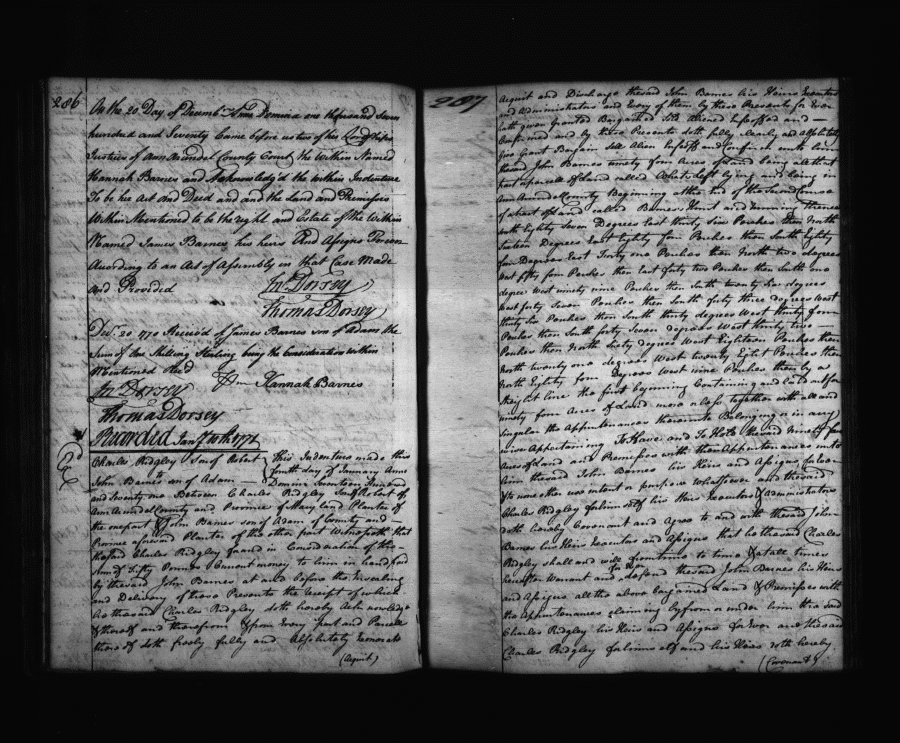 286
On the 20 Day of Decemb.r Anno Domini one thousand Seven
hundred and Seventy Came before us two of his Lordships
Justices of Ann Arundel County Court the Within Named
Hannah Barnes and Acknowledg'd the within Indenture
To be her Act and Deed and and the Land and Premisses
Within Mentioned to be the right and Estate of the Within
Named James Barnes his heirs And Assigns Forever
According to an Act of Assembly in that Case Made
And Provided Jn.o Dorsey
Thomas Dorsey
Dec.r 20 1770 Receiv'd of James Barnes son of Adam the
Sum of One Shilling Sterling being the Consideration within
Mentioned Rec'd
Jn.o Dorsey Hannah Barnes
Thomas Dorsey
Recorded Jan.y 10th 1771
Charles Ridgley Son of Robert This Indenture made this
John Barnes son of Adam fourth day of January Anno
Domini Seventeen Hundred
and Seventy one Between Charles Ridgley Son of Robert of
Ann Arundel County and Province of Maryland Planter of
the onepart & John Barnes son of Adam of County and
Province aforesaid Planter of the other part Witnesseth that
thesaid Charles Ridgley for and in Consideration of the
Sum of Fifty Pounds Current money to him in hand paid
by thesaid John Barnes at and before the Insealing
and Delivery of these Presents the receipt of which
he thesaid Charles Ridgley doth hereby Acknowledge
& thereof and therefrom & from Every part and Parcell
thereof doth freely fully and Absolutely Exonerate
(Acquit)
287
Acquit and Discharge thesaid John Barnes his Heirs Executors
and Administrators and Every of them by these Presents for Ever
hath given Granted Bargained Sold Aliened Infeoffed and
Confirmed and by these Presents doth fully Clearly and Absolutely
Give Grant Bargain Sell Alien Infeoff and Confirm unto him
thesaid John Barnes ninety four Acres of Land being all that
part or parcell of Land called What's Left lying and being in
Ann Arundel County Beginning at the end of the Second Course
of a tract of Land called Barnes Hunt and running thence
north Eighty Seven Degrees East thirty Six Perches then North
Sixteen Degrees East Eighty four Perches then South Eighty
four Degrees East Forty one Perches then North two degrees
West fifty four Perches then East forty two Perches then South one
degree West ninety nine Perches then South twenty Six degrees
West forty Seven Perches then South forty three degrees West
thirty Six Perches then South thirty degrees West thirty four
Perches then South forty Seven degrees West thirty two
Perches then North Sixty degrees West Eighteen Perches then
North twenty one degrees West twenty Eight Perches then
North Eighty four Degrees West nine Perches then by a
Straight line the first beginning Containing and laid out for
ninety four Acres of Land more or less together with all and
Singular the Appurtenances thereunto Belonging or in any
wise Appertaining To Have and To Hold thesaid ninety four
Acres of Land and Premisses with their Appurtenances unto
him thesaid John Barnes his Heirs and Assigns for Ever
& to none other use intent or purpose whatsoever and thesaid
Charles Ridgley for himself his Heirs Executors & Administrators
doth hereby Covenant and Agree to and with thesaid John
Barnes his Heirs Executors and Assigns that he thesaid Charles
Ridgley shall and will from time to time & at all times
hereafter Warrant and for Ever defend thesaid John Barnes his Heirs
and Assigns all the above bargained Land & Premisses with
the Appurtenances claiming by from or under him thesaid
Charles Ridgley his Heirs and Assigns for Ever and thesaid
Charles Ridgley for himself and his Heirs doth hereby
(Covenant)